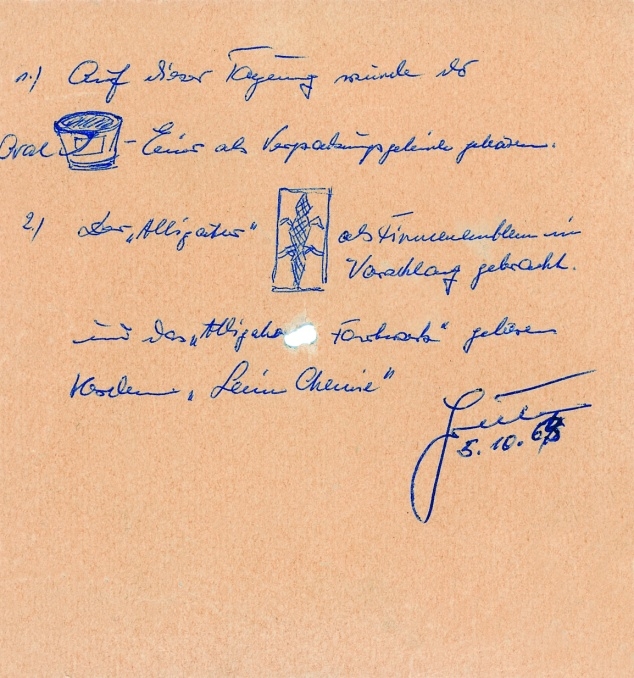 1.) Auf dieser Tagung wurde der
Oval - Eimer als Verpackungsgebinde geboren.
2.) Der „Alligator"
als Firmenemblem in
Vorschlag gebracht.
und das „Alligator Farbwerk" geboren
vordem „Leim Chemie"
5.10.65